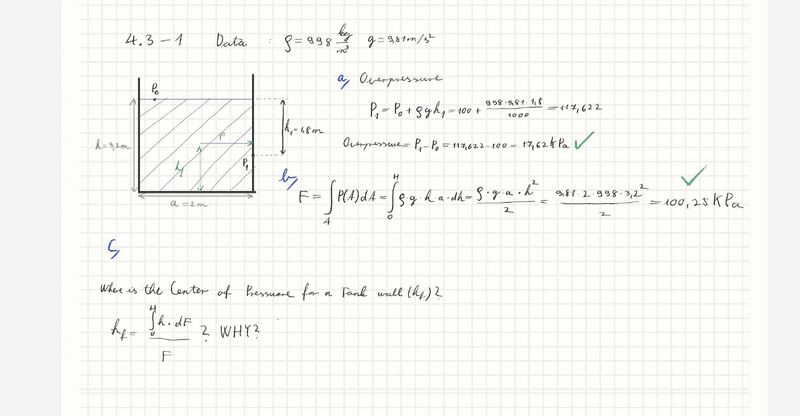 4.3-1 Data : ρ=998 kg/m³ g=9,81m/s²
a, Overpressure
P₁=P₀+ρgh₁=100+ 998·9,81·1,8/1000 =117,622
Overpressure=P₁-P₀=117,622-100=17,62kPa ✓
P₀
h=3,2m
h₁=1,8m
F
hf
P₁
a=2m
b,
F=∫_A P(A)dA=∫_0^H ρ·g h a·dh= ρ·g·a·h²/2 = 9,81·2·998·3,2²/2 =100,25KPa ✓
c,
Where is the Center of Pressure for a Tank wall (hf)?
hf= ∫_0^H h·dF / F ? WHY?